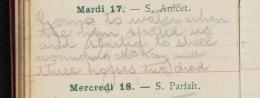 Mardi 17. — S. Anicet.
Going to water when
the hun spotted us
and started to shell
wounded McKay and
three horses two died
Mercredi 18. — S. Parfait.